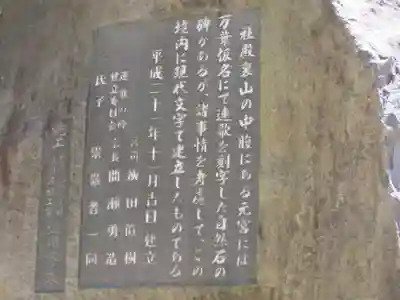 社殿裏山の中腹にある元宮には
万葉仮名にて連歌を刻字した自然石の
碑があるが、諸事情を考慮して、この
境内に現代文字で建立したものである
平成二十一年十二月吉日建立
宮司 田直樹
建立委員会会長 間瀬勇造
氏子 崇敬者一同